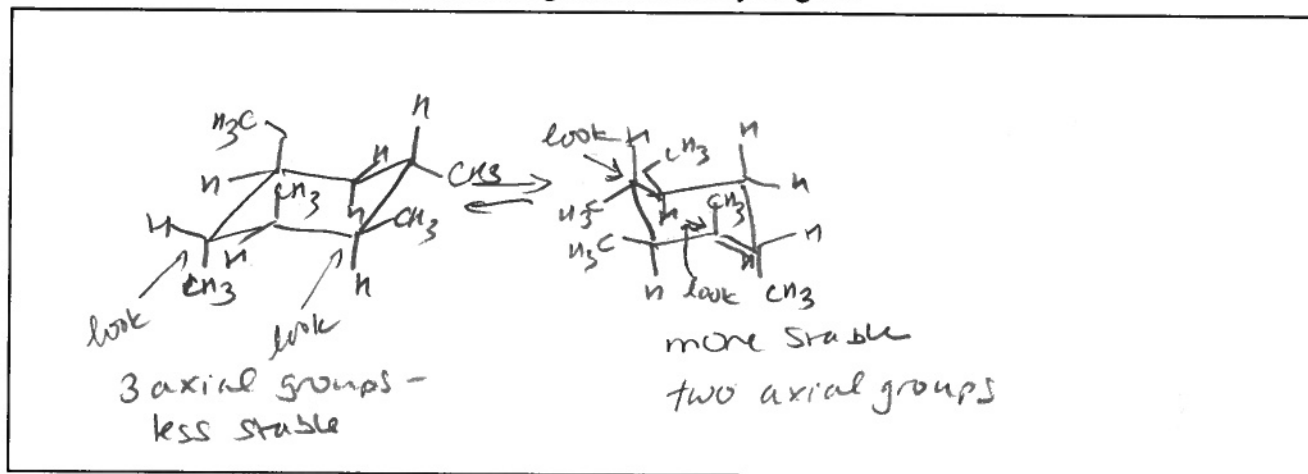 H
H3C
H
CH3
H
CH3
H
H
CH3
H
CH3
H
look
look
3 axial groups -
less stable
look
H
CH3
H
H3C
H
CH3
H
H3C
H
H
H
look
CH3
more stable
two axial groups